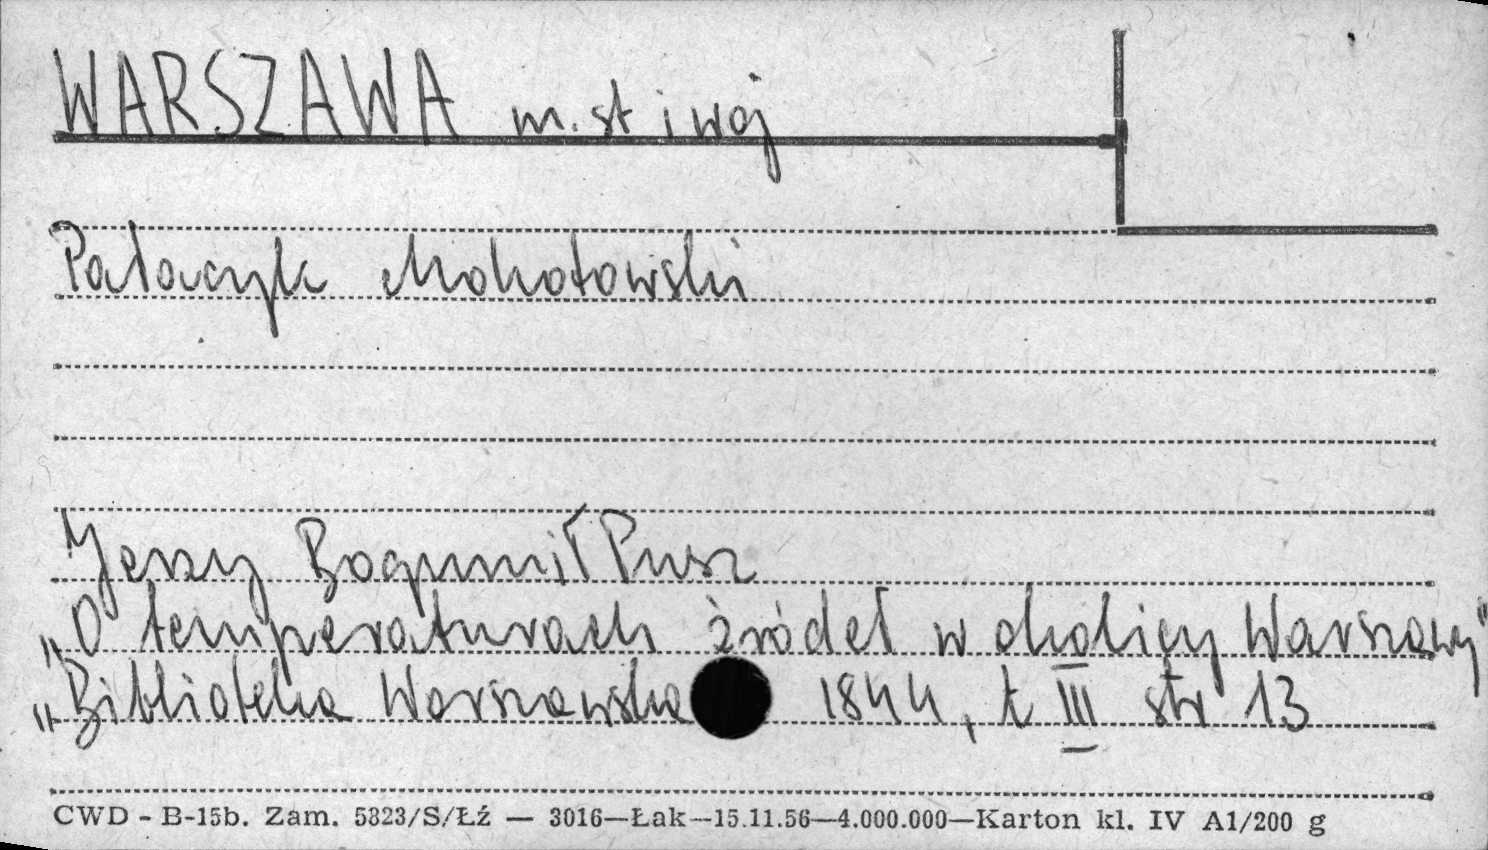 WARSZAWA m. st i woj
Pałacyk Mokotowski
Jerzy Bogumił Pusz
„O temperaturach źródeł w okolicy Warszawy"
„Biblioteka Warszawska 1844, t III str 13
CWD - B-15b. Zam. 5823/S/Łź — 3016—Łak—15.11.56—4.000.000—Karton kl. IV A1/200 g